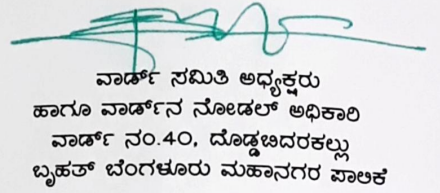 ವಾರ್ಡ್ ಸಮಿತಿ ಅಧ್ಯಕ್ಷರು
ಹಾಗೂ ವಾರ್ಡ್‌ನ ನೋಡಲ್ ಅಧಿಕಾರಿ
ವಾರ್ಡ್ ನಂ.40, ದೊಡ್ಡಬಿದರಕಲ್ಲು
ಬೃಹತ್ ಬೆಂಗಳೂರು ಮಹಾನಗರ ಪಾಲಿಕೆ